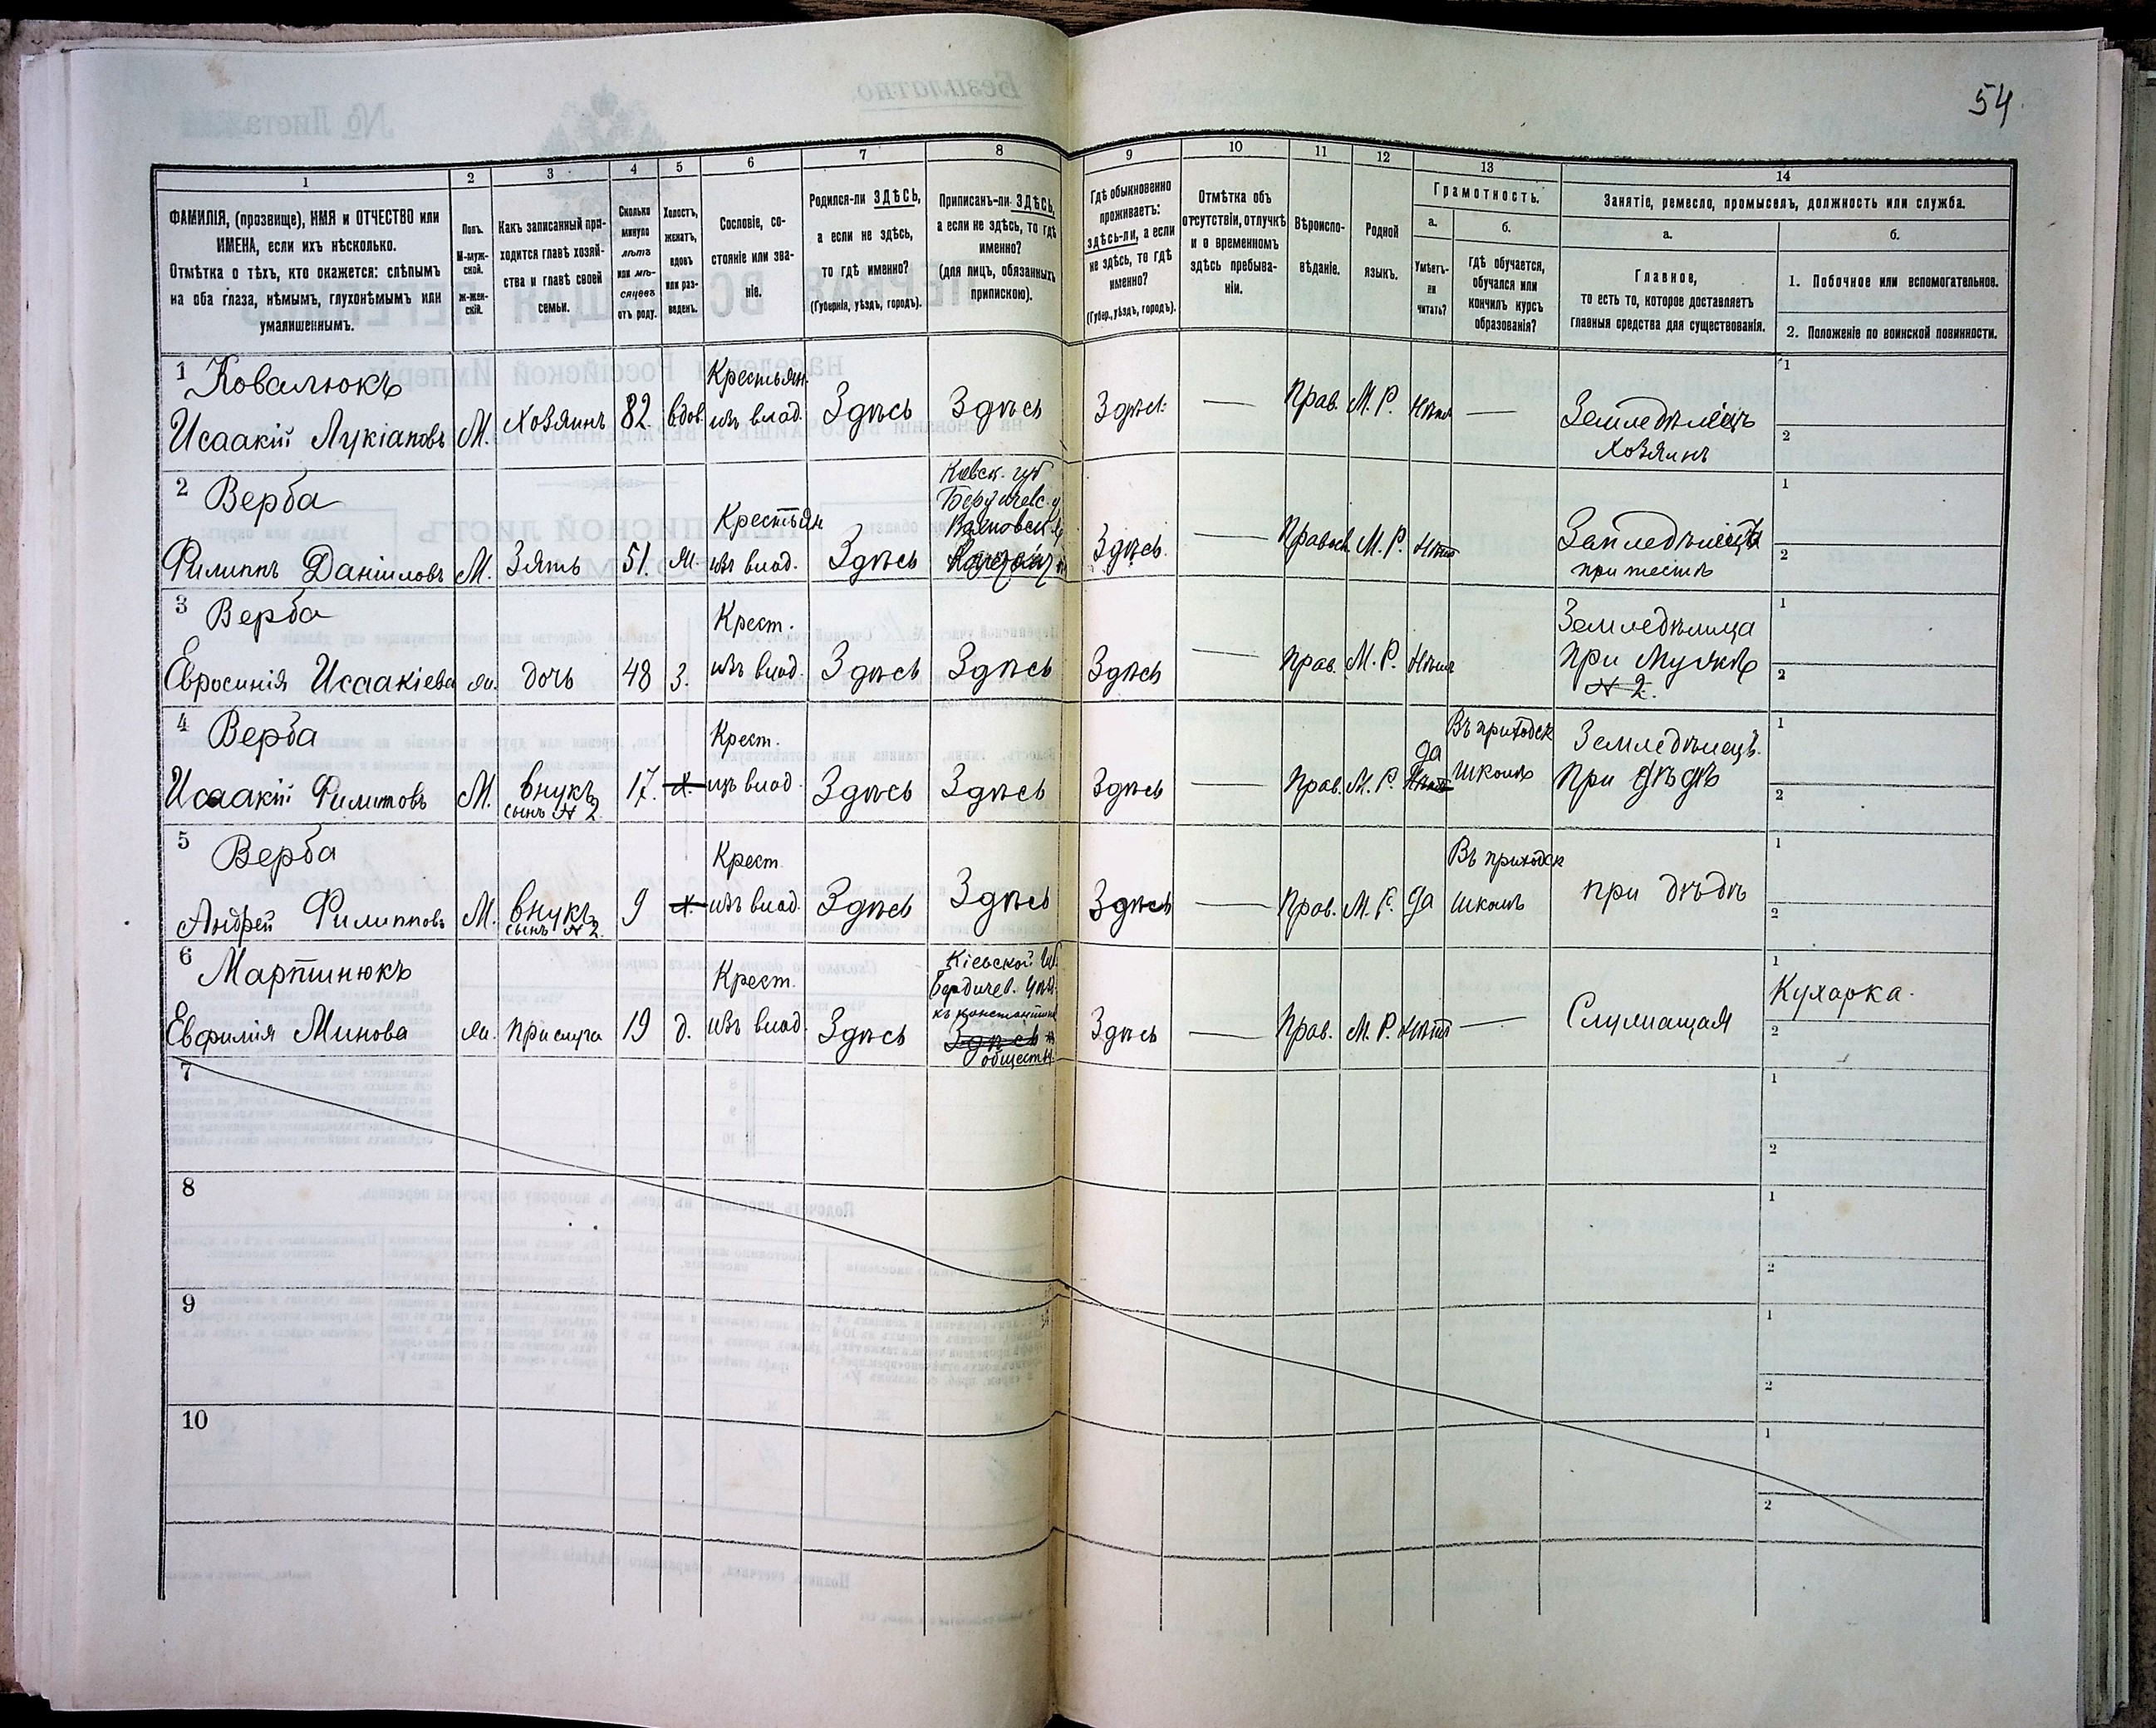 54
1 2 3 4 5 6 7 8 9 10 11 12 13 14
ФАМИЛІЯ, (прозвище), ИМЯ и ОТЧЕСТВО или
ИМЕНА, если ихъ нѣсколько.
Отмѣтка о тѣхъ, кто окажется: слѣпымъ
на оба глаза, нѣмымъ, глухонѣмымъ или
умалишеннымъ.
Полъ.
М-муж-
ской.
Ж-жен-
скій.
Какъ записанный при-
ходится главѣ хозяй-
ства и главѣ своей
семьи.
Сколько
минуло
лѣтъ
или мѣ-
сяцевъ
отъ роду.
Холостъ,
женатъ,
вдовъ
или раз-
веденъ.
Сословіе, со-
стояніе или зва-
ніе.
Родился-ли ЗДѢСЬ,
а если не здѣсь,
то гдѣ именно?
(Губернія, уѣздъ, городъ).
Приписанъ-ли ЗДѢСЬ,
а если не здѣсь, то гдѣ
именно?
(для лицъ, обязанныхъ
припискою).
Гдѣ обыкновенно
проживаетъ:
здѣсь-ли, а если
не здѣсь, то гдѣ
именно?
(Губер., уѣздъ, городъ).
Отмѣтка объ
отсутствіи, отлучкѣ
и о временномъ
здѣсь пребыва-
ніи.
Вѣроиспо-
вѣданіе.
Родной
языкъ.
Грамотность.
а.
Умѣетъ-
ли
читать?
б.
гдѣ обучается,
обучался или
кончилъ курсъ
образованія?
Занятіе, ремесло, промыселъ, должность или служба.
а.
Главное,
то есть то, которое доставляетъ
главныя средства для существованія.
б.
1. Побочное или вспомогательное.
2. Положеніе по воинской повинности.
1 Ковалюкъ Крестьян. 1
Исаакій Лукіановъ М. Хозяинъ 82 вдов. изъ влад. Здѣсь Здѣсь Здѣсь — Прав. М. Р. Нѣтъ — Земледѣлецъ 2
Хозяинъ
2 Верба Крестьян 1
Бердичевс. у
Филиппъ Даніиловъ М. Зять 51. М. изъ влад. Здѣсь Здѣсь. — Правосл. М. Р. Нѣтъ Земледѣлецъ 2
при тестѣ
3 Верба Крест. Земледѣлица 1
Евросинія Исаакіева ж. дочь 48 З. изъ влад. Здѣсь Здѣсь Здѣсь — Прав. М. Р. Нѣтъ при мужѣ 2
N 2.
4 Верба Крест. да Въ приходск Земледѣлецъ. 1
Исаакій Филиповъ М. внукъ 17. Х. изъ влад. Здѣсь Здѣсь Здѣсь — Прав. М. Р. Нѣтъ школѣ при дѣдѣ 2
сынъ N 2
5 Верба Крест. Въ приходск 1
Андрей Филипповъ М. внукъ 9 Х. изъ влад. Здѣсь Здѣсь Здѣсь — Прав. М. Р. да школѣ при дѣдѣ 2
сынъ N 2.
6 Мартинюкъ Крест. Кіевской губ. 1
Бердичев. уѣзд. Кухарка.
Евфимія Минова ж. прислуга 19 д. изъ влад. Здѣсь Здѣсь Здѣсь — Прав. М. Р. Нѣтъ — Служащая 2
обществ
7 1
2
8 1
2
9 1
2
10 1
2